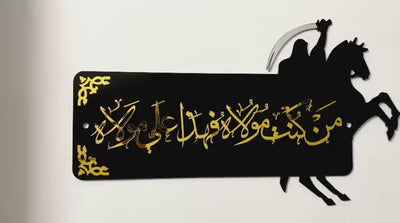 مَنْ كُنْتُ مَوْلَاهُ فَهَذَا عَلِيٌّ مَوْلَاهُ